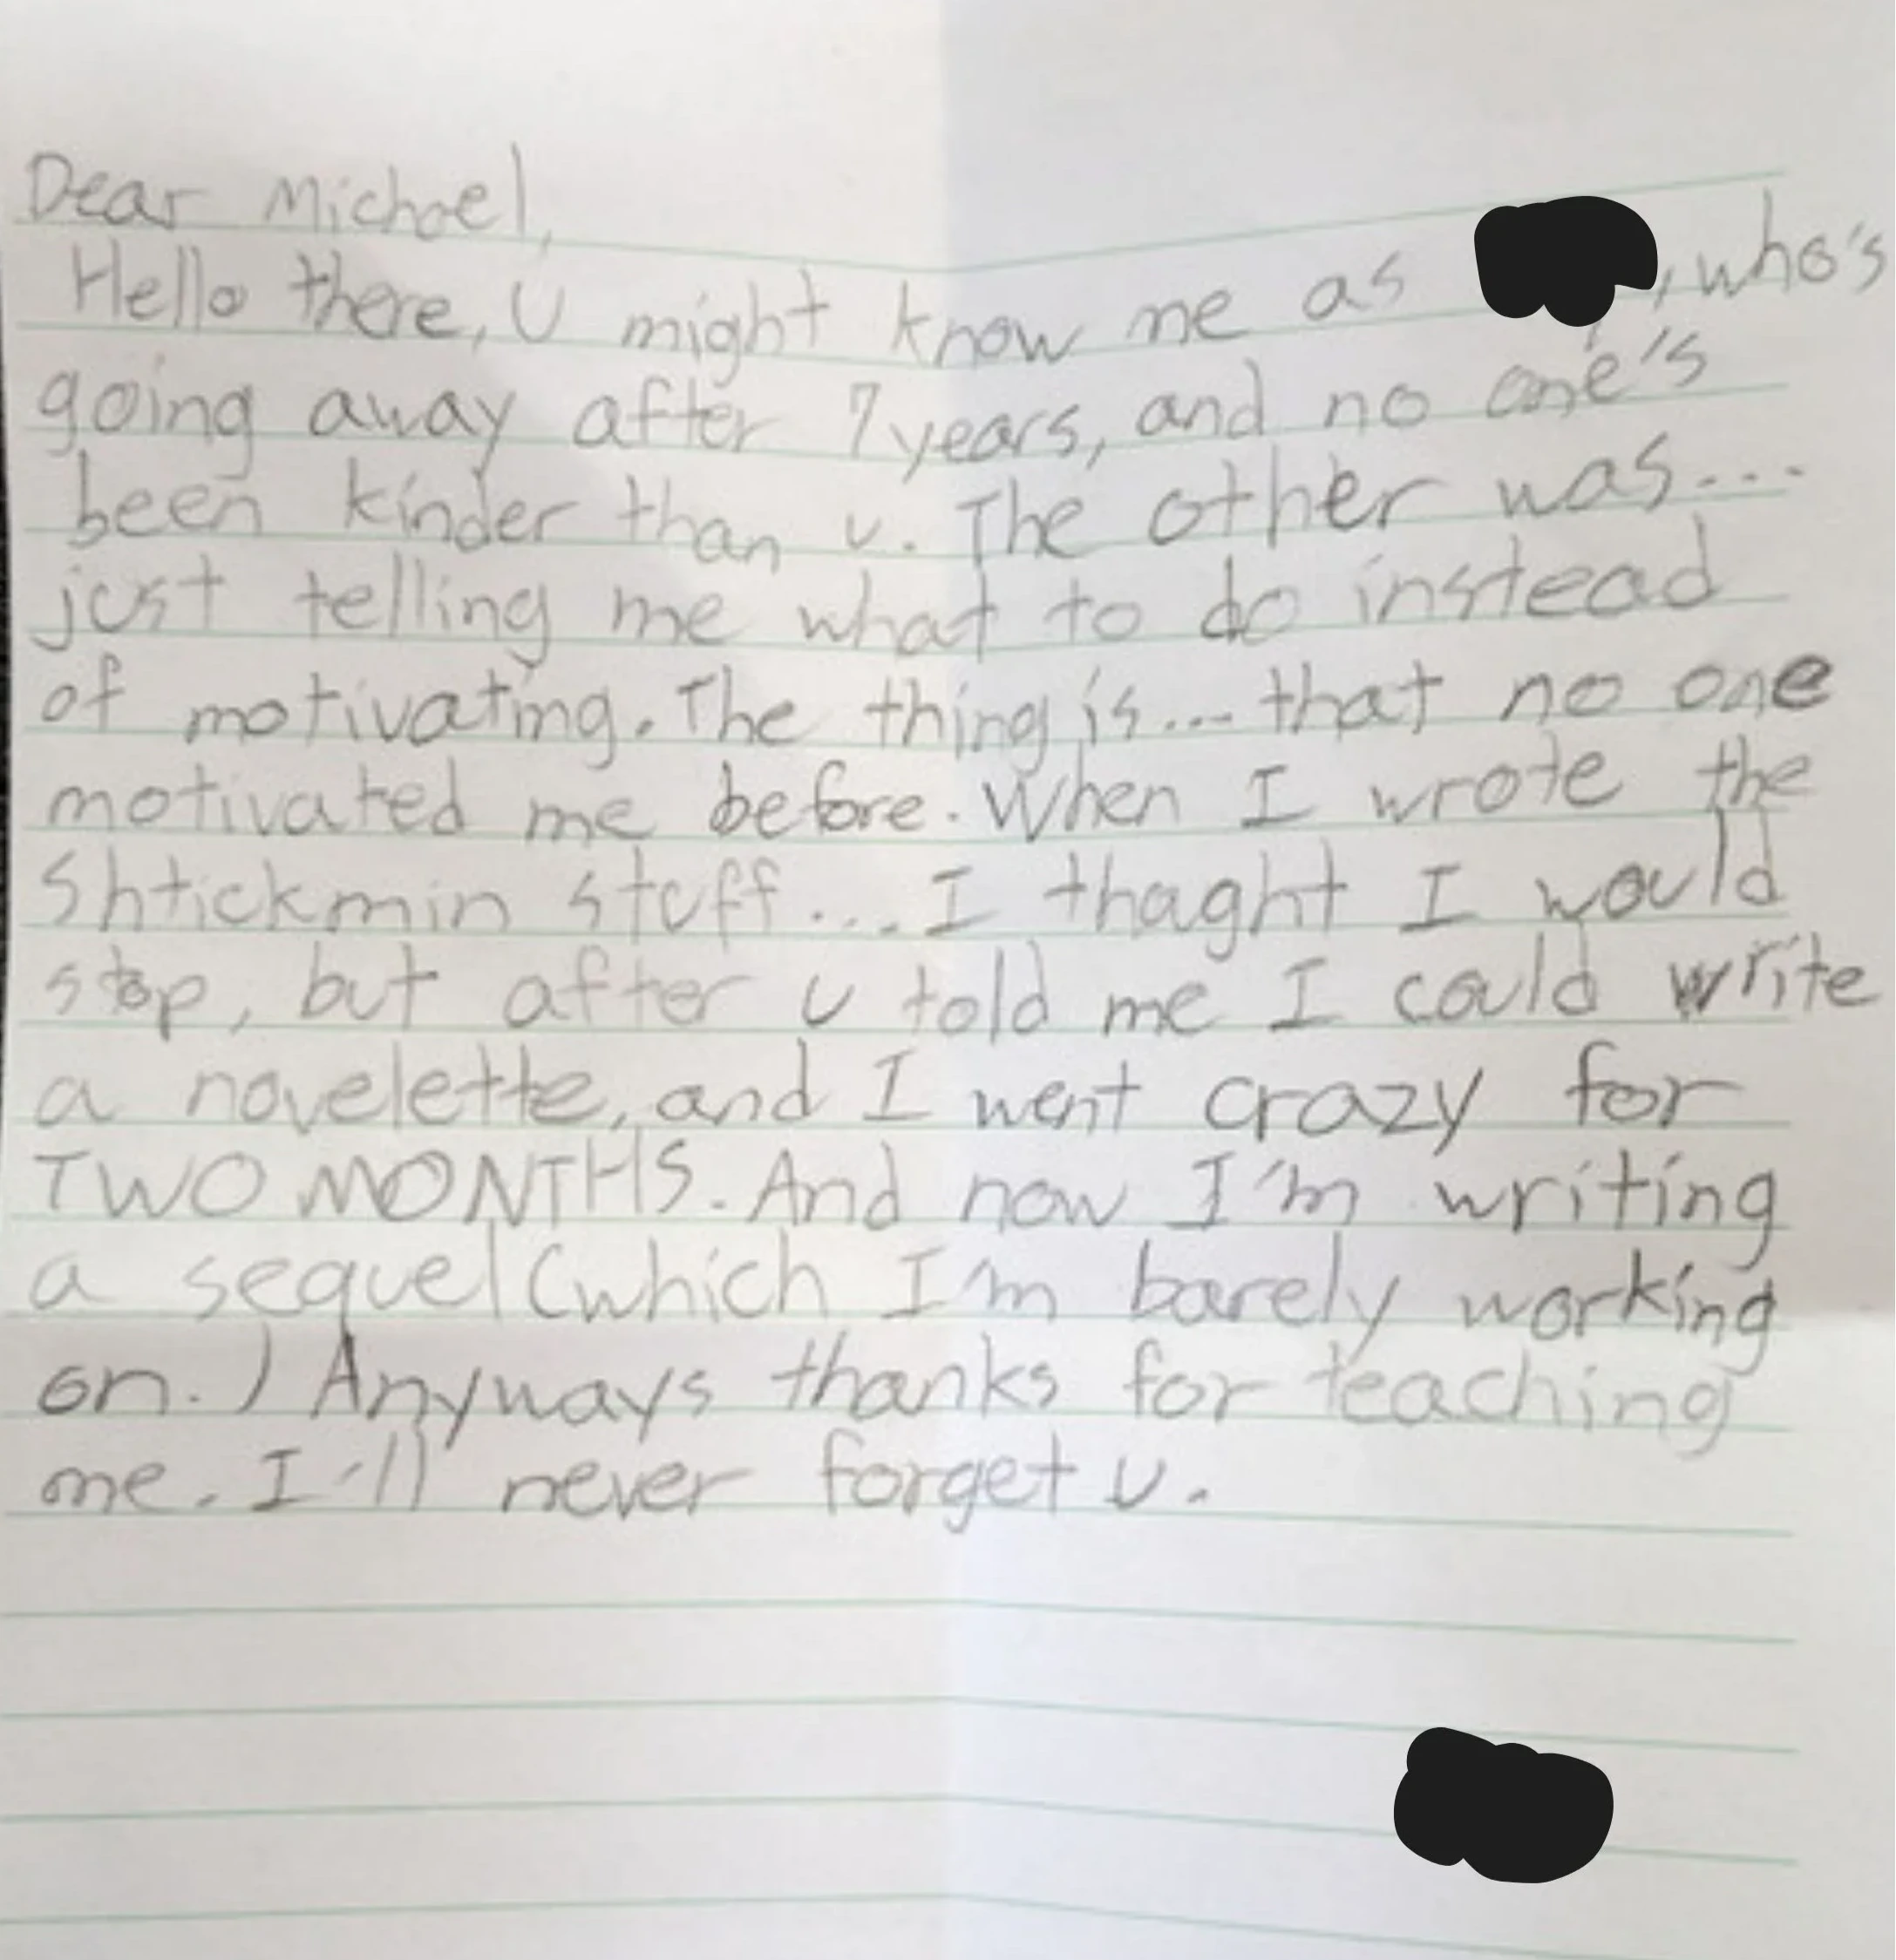 Dear Michael,
Hello there, U might know me as , who's
going away after 7 years, and no one's
been kinder than u. The other was....
just telling me what to do instead
of motivating. The thing is... that no one
motivated me before. When I wrote the
Shtickmin stuff.... I thaght I would
stop, but after u told me I could write
a novelette, and I went crazy for
TWO MONTHS. And now I'm writing
a sequel (which I'm barely working
on.) Anyways thanks for teaching
me. I'll never forget u.